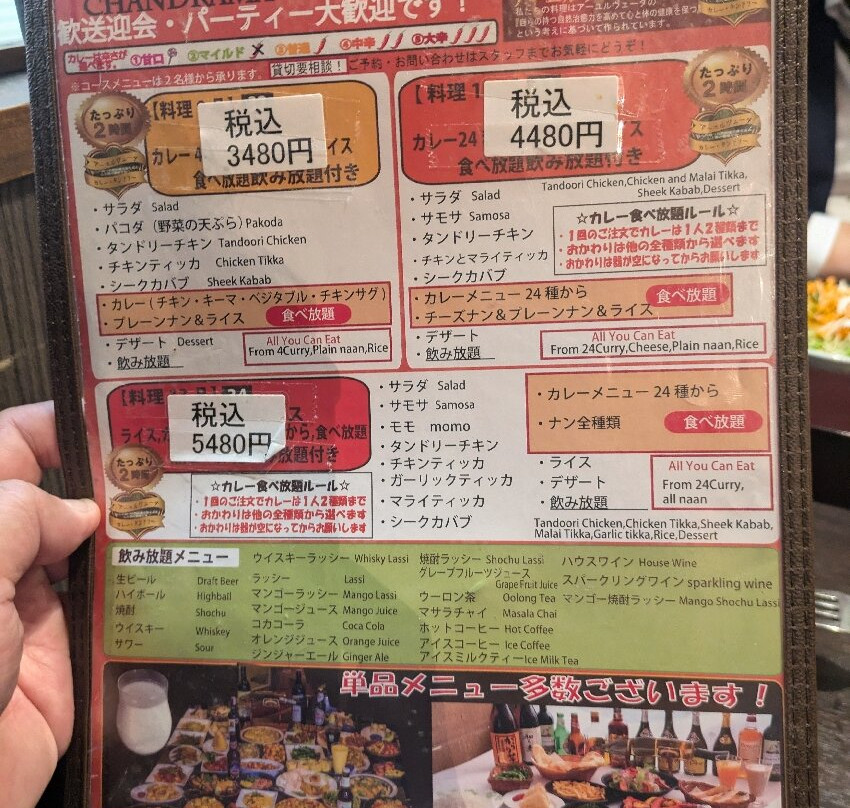 CHANDRAMA
歓送迎会・パーティー大歓迎です！
私たちの料理はアーユルヴェーダの
『自らの持つ自然治癒力を高めて心と体の健康を保つ』
という考えに基づいて作られています。
カレーは辛さが選べます。 ①甘口 ②マイルド ③普通 ④中辛 ⑤大辛
※コースメニューは2名様から承ります。 貸切要相談！ ご予約・お問い合わせはスタッフまでお気軽にどうぞ！
たっぷり
2時間
【料理
税込
3480円
カレー4 イス
食べ放題飲み放題付き
・サラダ Salad
・パコダ（野菜の天ぷら）Pakoda
・タンドリーチキン Tandoori Chicken
・チキンティッカ Chicken Tikka
・シークカバブ Sheek Kabab
・カレー（チキン・キーマ・ベジタブル・チキンサグ）
・プレーンナン＆ライス 食べ放題
・デザート Dessert
・飲み放題
All You Can Eat
From 4Curry,Plain naan,Rice
【料理 1
税込
4480円
カレー24 ス
食べ放題飲み放題付き
たっぷり
2時間
・サラダ Salad
・サモサ Samosa
・タンドリーチキン
・チキンとマライティッカ
・シークカバブ
Tandoori Chicken,Chicken and Malai Tikka,
Sheek Kabab,Dessert
☆カレー食べ放題ルール☆
・1回のご注文でカレーは1人2種類まで
・おかわりは他の全種類から選べます
・おかわりは器が空になってからお願いします
・カレーメニュー 24種から 食べ放題
・チーズナン＆プレーンナン＆ライス
・デザート
・飲み放題
All You Can Eat
From 24Curry,Cheese,Plain naan,Rice
【料理
税込
5480円
ス
ライス,カ から,食べ放題
放題付き
たっぷり
2時間
☆カレー食べ放題ルール☆
・1回のご注文でカレーは1人2種類まで
・おかわりは他の全種類から選べます
・おかわりは器が空になってからお願いします
・サラダ Salad
・サモサ Samosa
・モモ momo
・タンドリーチキン
・チキンティッカ
・ガーリックティッカ
・マライティッカ
・シークカバブ
・カレーメニュー 24種から
・ナン全種類 食べ放題
・ライス
・デザート
・飲み放題
All You Can Eat
From 24Curry,
all naan
Tandoori Chicken,Chicken Tikka,Sheek Kabab,
Malai Tikka,Garlic tikka,Rice,Dessert
飲み放題メニュー
生ビール Draft Beer
ハイボール Highball
焼酎 Shochu
ウイスキー Whiskey
サワー Sour
ウイスキーラッシー Whisky Lassi
ラッシー Lassi
マンゴーラッシー Mango Lassi
マンゴージュース Mango Juice
コカコーラ Coca Cola
オレンジジュース Orange Juice
ジンジャーエール Ginger Ale
焼酎ラッシー Shochu Lassi
グレープフルーツジュース
Grape Fruit Juice
ウーロン茶 Oolong Tea
マサラチャイ Masala Chai
ホットコーヒー Hot Coffee
アイスコーヒー Ice Coffee
アイスミルクティーIce Milk Tea
ハウスワイン House Wine
スパークリングワイン sparkling wine
マンゴー焼酎ラッシー Mango Shochu Lassi
単品メニュー多数ございます！